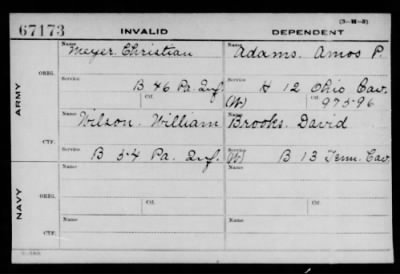 (3-H-5)
67173 INVALID DEPENDENT
Name Name
Meyer. Christian Adams. Amos P.
ORIG.
Service Service
B 46 Pa. Inf. H 12 Ohio Cav.
Ctf. (W) Ctf. 97596
ARMY
Name Name
Wilson. William Brooks. David
CTF.
Service Service
B 54 Pa. Inf. (W) B 13 Tenn. Cav.
Name Name
ORIG.
Service Service
Ctf. Ctf.
NAVY
Name Name
CTF.
Service Service